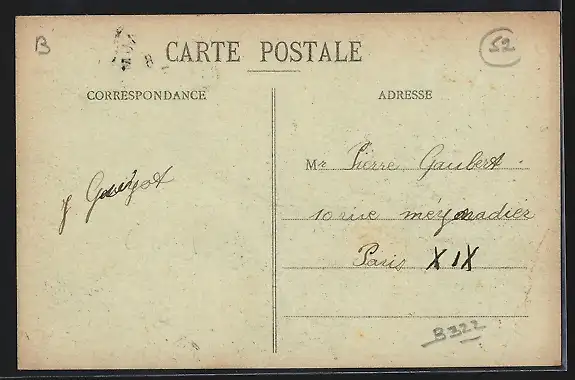 B
52
CARTE POSTALE
CORRESPONDANCE
ADRESSE
Mr Pierre Gaubert.
J Guiyot
10 rue méynadier
Paris XIX
B322